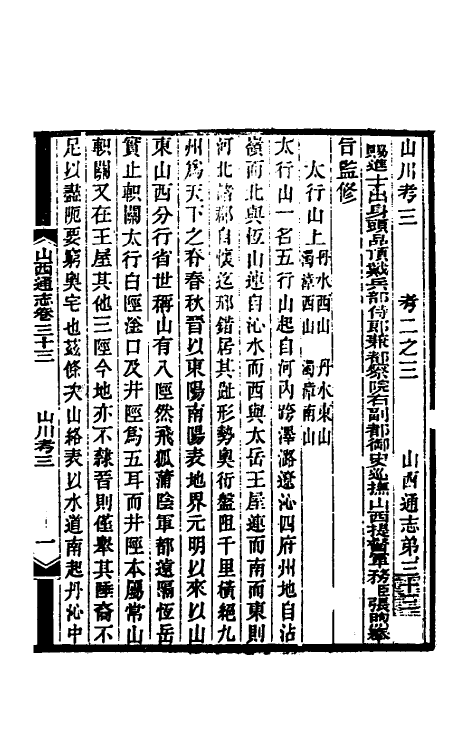 山川考三 考二之三 山西通志第三十三
賜進士出身頭品頂戴兵部侍郎兼都察院右副都御史巡撫山西提督軍務臣張煦奉
旨監修
太行山上 丹水西山 丹水東山 濁漳西山 濁漳南山
太行山一名五行山起自河內跨澤潞遼沁四府州地自沾
嶺而北與恆山連自沁水而西與太岳王屋連而南而東則
河北諸郡自懷迄邢錯居其趾形勢奧衍盤阻千里橫絕九
州爲天下之脊春秋晉以東陽南陽表地界元明以來以山
東山西分行省世稱山有八陘然飛狐蒲陰軍都遠隔恆岳
實止軹關太行白陘滏口及井陘爲五耳而井陘本屬常山
軹關又在王屋其他三陘今地亦不隸晉則僅舉其陲裔不
足以盡阨要窮奧宅也茲條次山絡表以水道南起丹沁中
山西通志卷三十三 山川考三 一